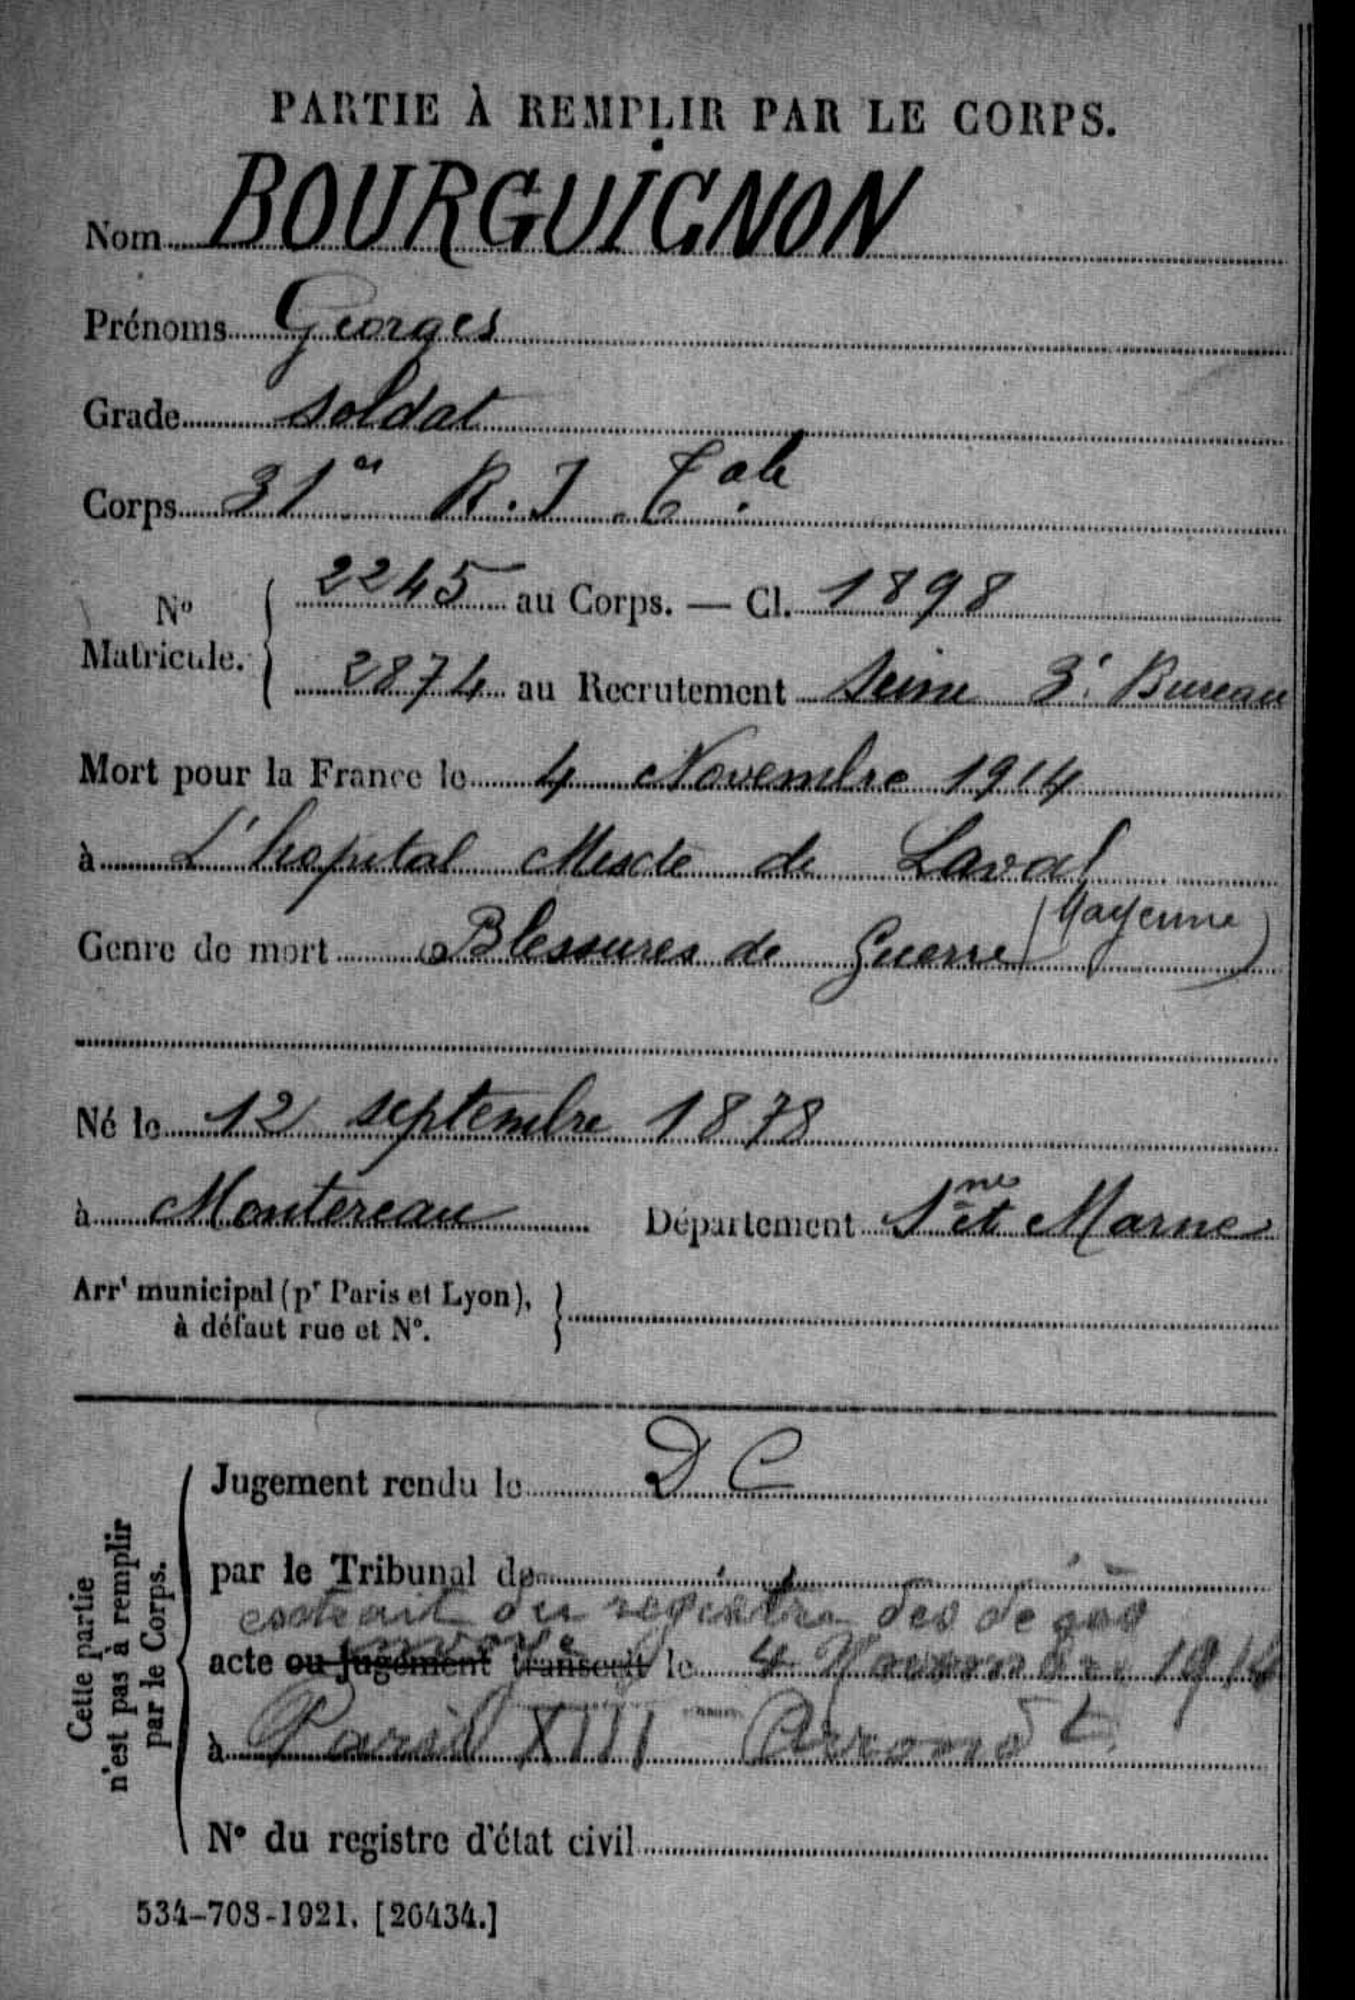 PARTIE À REMPLIR PAR LE CORPS.
Nom BOURGUIGNON
Prénoms Georges
Grade soldat
Corps 31e R.I. Cale
No Matricule. 2245 au Corps. — Cl. 1898
2874 au Recrutement Seine 3e Bureau
Mort pour la France le 4 Novembre 1914
à L'hopital Mixte de Laval
(Mayenne)
Genre de mort Blessures de Guerre
Né le 12 septembre 1878
à Montereau Département Sne et Marne
Arrt municipal (pr Paris et Lyon),
à défaut rue et N°.
Cette partie
n'est pas à remplir
par le Corps.
Jugement rendu le D C
par le Tribunal de
extrait du registre des de
envoyé
acte ou jugement transcrit le 4 Novembre 1914
à Paris XIII Arrondt
N° du registre d'état civil
534-708-1921. [26434.]